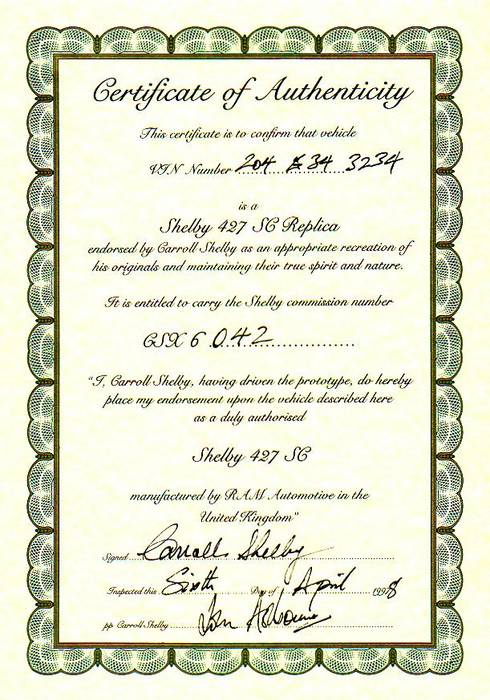 Certificate of Authenticity
This certificate is to confirm that vehicle
VIN Number 204 634 3234
is a
Shelby 427 SC Replica
endorsed by Carroll Shelby as an appropriate recreation of
his originals and maintaining their true spirit and nature.
It is entitled to carry the Shelby commission number
CSX 6 042
"I, Carroll Shelby, having driven the prototype, do hereby
place my endorsement upon the vehicle described here
as a duly authorised
Shelby 427 SC
manufactured by RAM Automotive in the
United Kingdom"
Signed Carroll Shelby
Inspected this Sixth Day of April 1998
pp Carroll Shelby